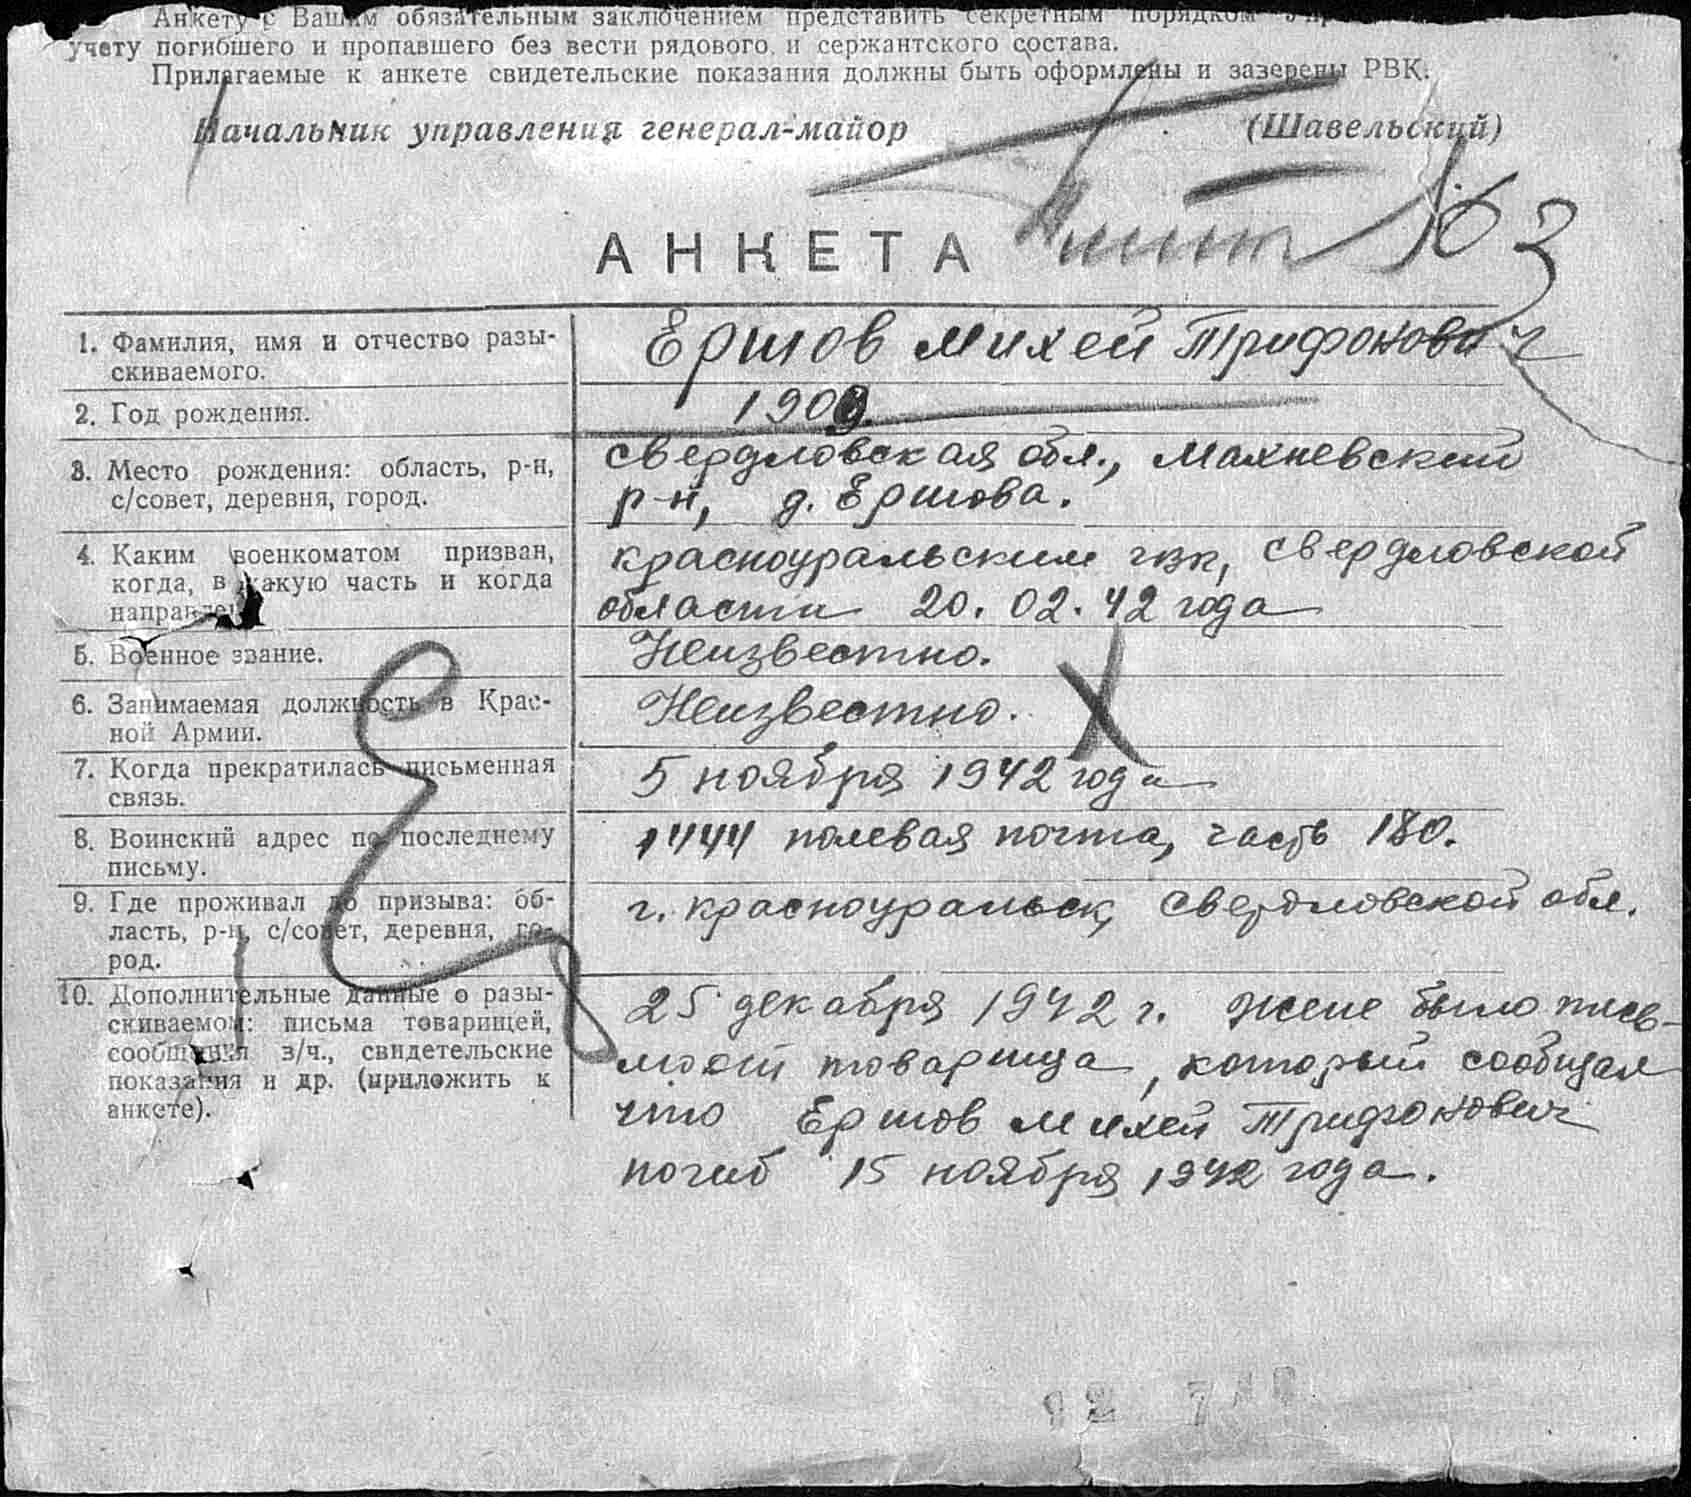 Анкету с Вашим обязательным заключением представить секретным порядком
учету погибшего и пропавшего без вести рядового и сержантского состава.
Прилагаемые к анкете свидетельские показания должны быть оформлены и заверены РВК.
Начальник управления генерал-майор (Шавельский)
АНКЕТА
163
1. Фамилия, имя и отчество разы-
скиваемого.
Ершов Михей Трифонович
2. Год рождения.
1909.
3. Место рождения: область, р-н,
с/совет, деревня, город.
Свердловская обл., Махневский
р-н, д. Ершова.
4. Каким военкоматом призван,
когда, в какую часть и когда
направлен
Красноуральским гвк, Свердловской
области 20.02.42 года
5. Военное звание.
Неизвестно.
6. Занимаемая должность в Крас-
ной Армии.
Неизвестно.
7. Когда прекратилась письменная
связь.
5 ноября 1942 года
8. Воинский адрес по последнему
письму.
1444 полевая почта, часть 180.
9. Где проживал до призыва: об-
ласть, р-н, с/совет, деревня, го-
род.
г. Красноуральск, Свердловской обл.
10. Дополнительные данные о разы-
скиваемом: письма товарищей,
сообщения з/ч., свидетельские
показания и др. (приложить к
анкете).
25 декабря 1942 г. Жене было пись-
мо от товарища, который сообщал
что Ершов Михей Трифонович
погиб 15 ноября 1942 года.